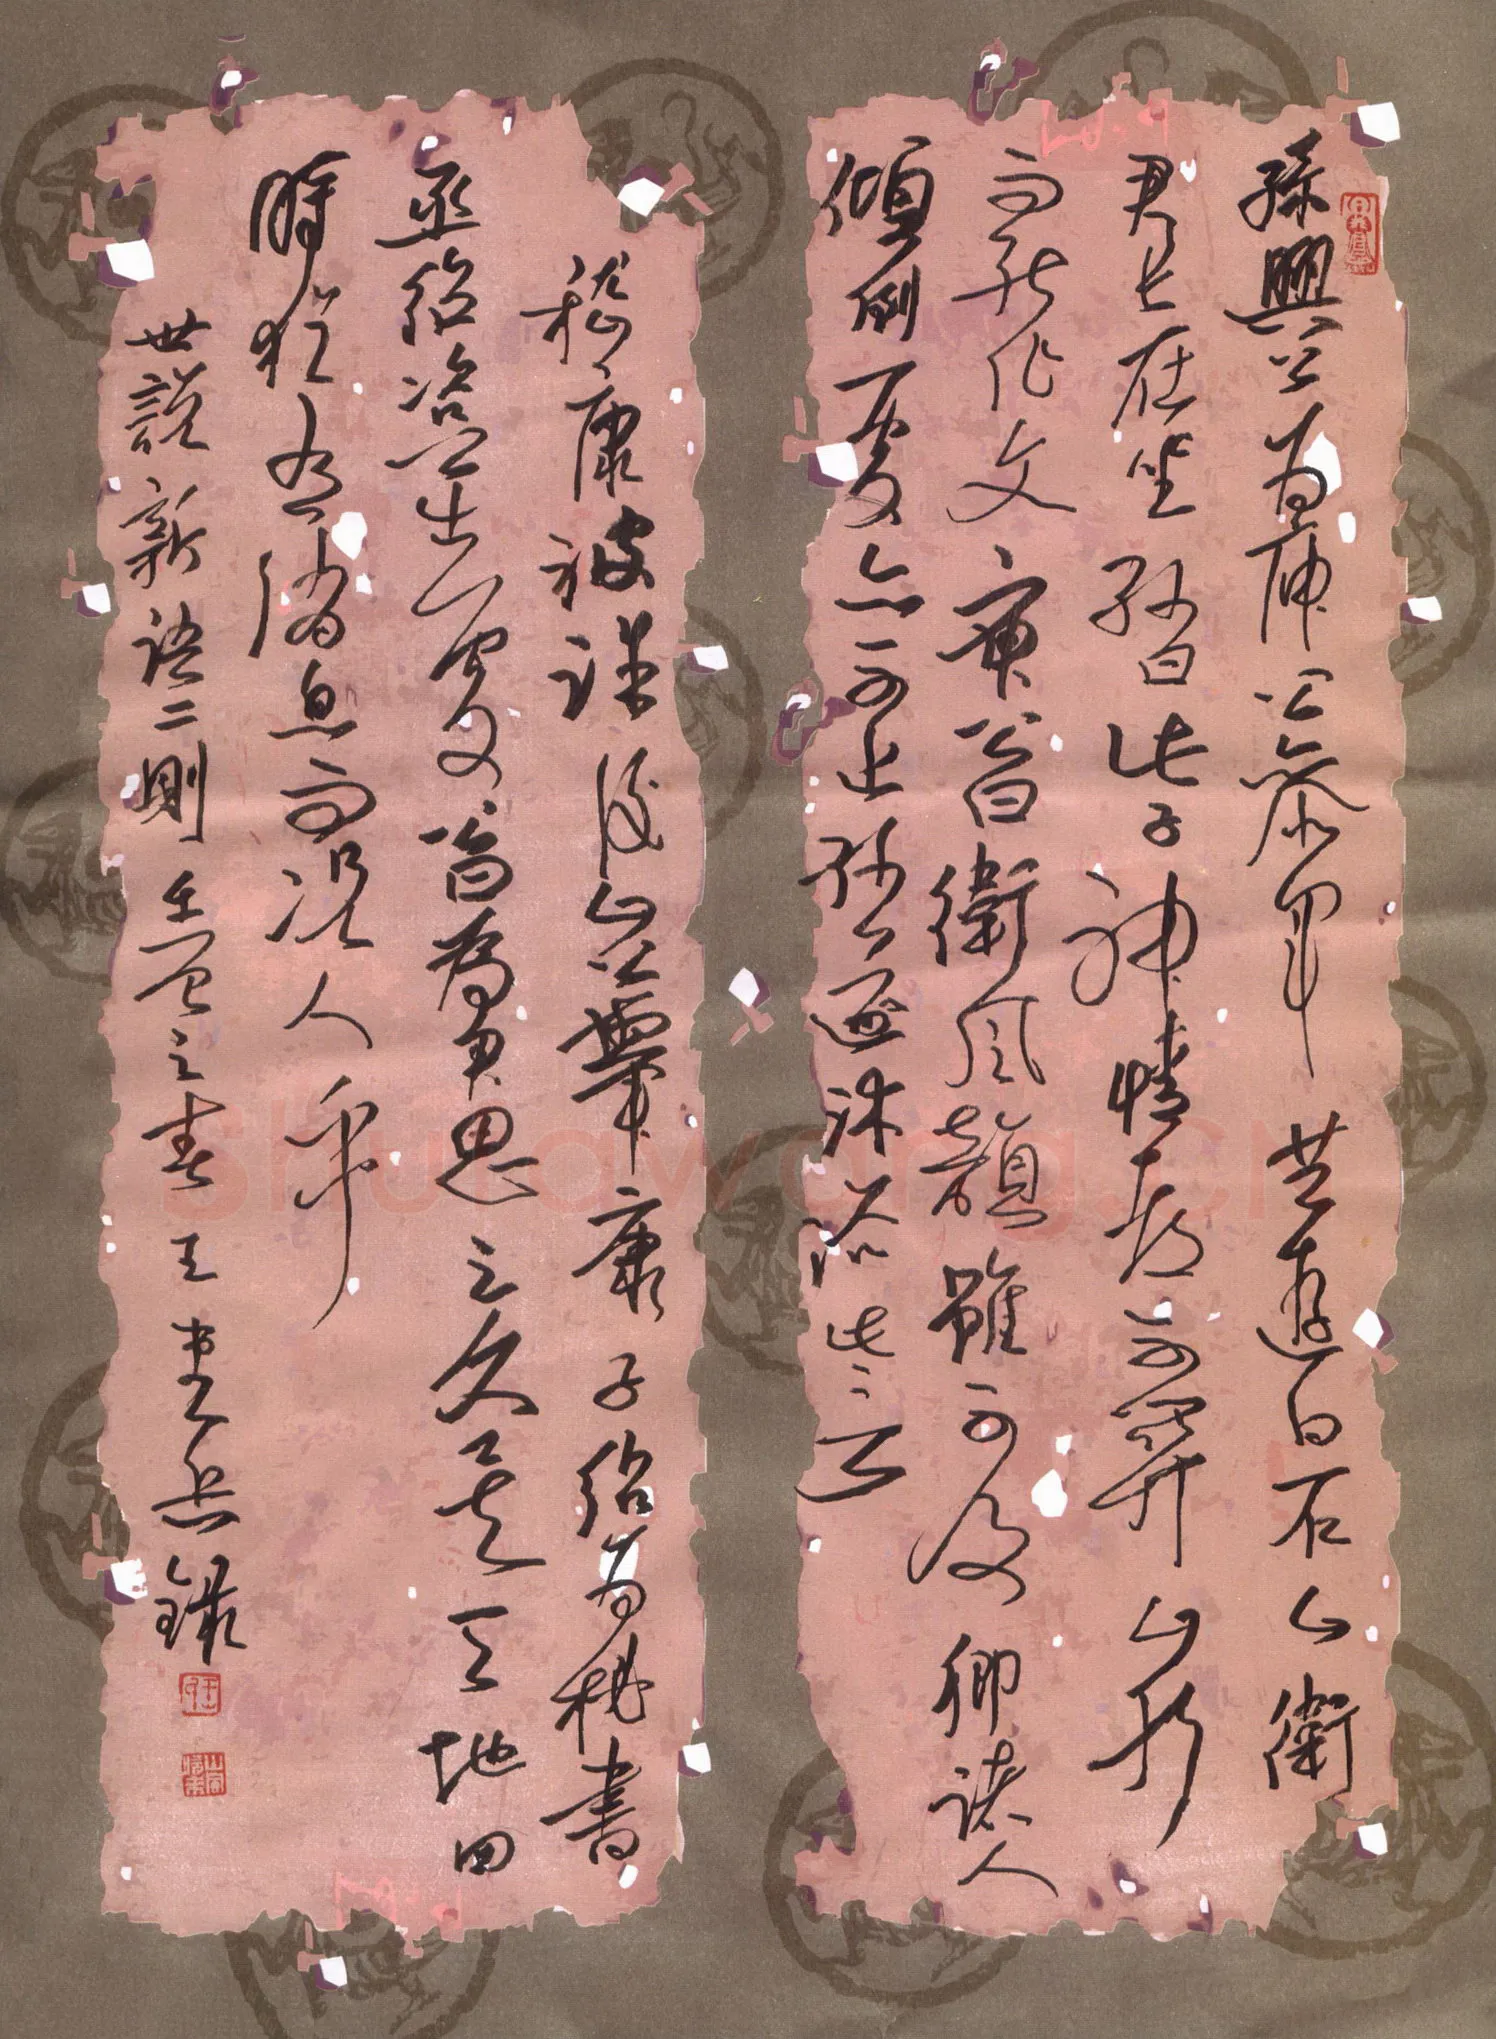 孫興公為庾公參軍共遊白石山衛
君長在坐孫曰此子神情都不關山水
而能作文庾公曰衛風韻雖不及卿諸人
傾倒處亦不近孫遂沐浴此言
嵇康被誅後山公舉康子紹為秘書
丞紹咨公出處公曰為君思之久矣天地四
時猶有消息而況人乎
世說新語二則之春王錄
Shufawang.CN